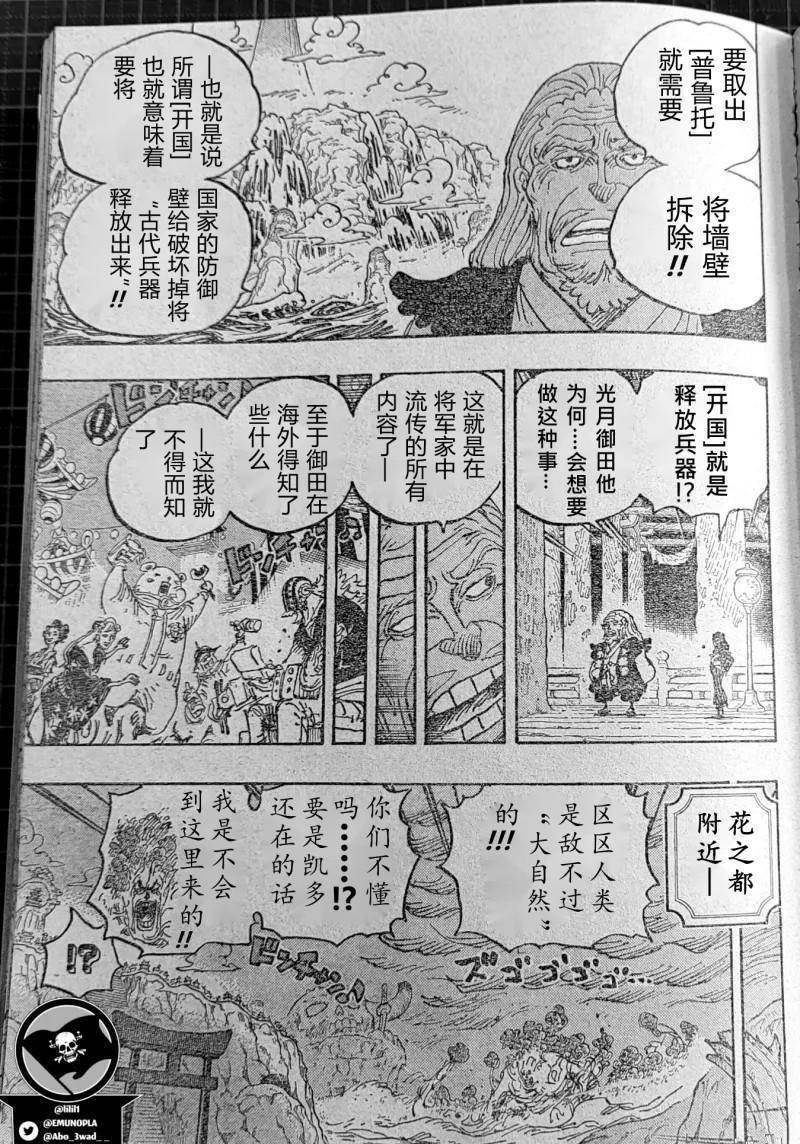 要取出
[普鲁托]
就需要
将墙壁
拆除!!
—也就是说
所谓[开国]
也就意味着
要将
国家的防御
壁给破坏掉将
“古代兵器
释放出来”!!
[开国]就是
释放兵器!?
光月御田他
为何…会想要
做这种事…
这就是在
将军家中
流传的所有
内容了—
至于御田在
海外得知了
些什么
—这我就
不得而知
了
ドンチャン♪
ドンチャン♪
花之都
附近—
区区人类
是敌不过
“大自然”
的!!!
你们不懂
吗……!?
要是凯多
还在的话
我是不会
到这里来的!!
!?
ドンチャン♪
ズゴゴゴゴ…
@lilil1
@EMUNOPLA
@Abo_3wad__